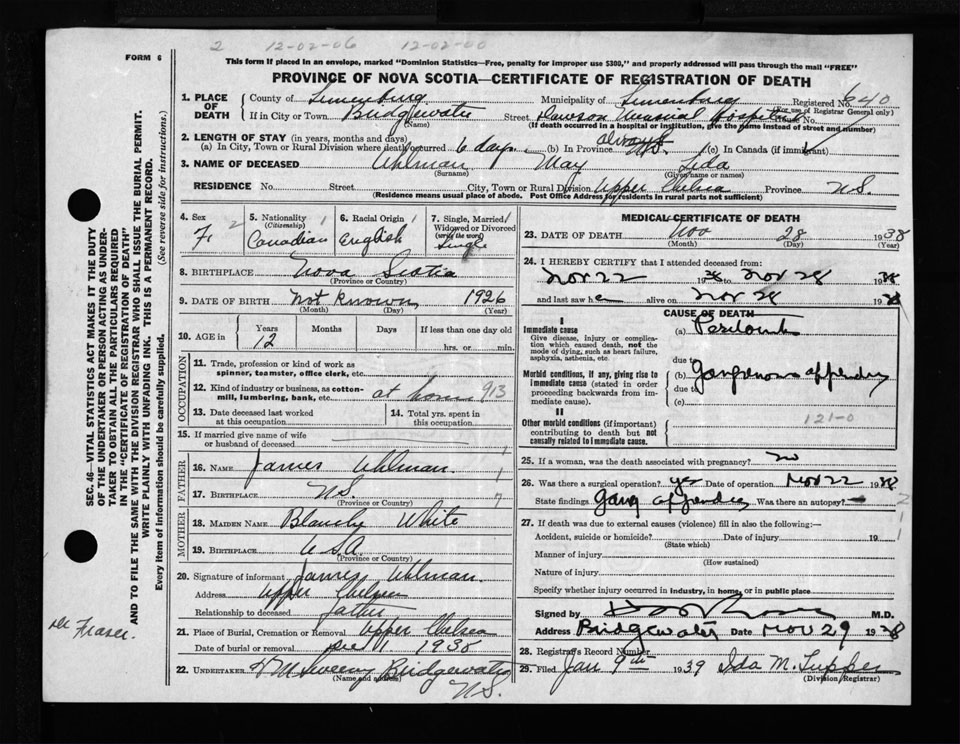 2 12-02-06 12-02-00
FORM 6
This form if placed in an envelope, marked "Dominion Statistics—Free, penalty for improper use $300," and properly addressed will pass through the mail "FREE"
PROVINCE OF NOVA SCOTIA—CERTIFICATE OF REGISTRATION OF DEATH
1. PLACE OF DEATH
County of Lunenburg Municipality of Lunenburg Registered No. 640
(For use of Registrar General only)
If in City or Town Bridgewater Street Dawson Memorial Hospital House No.
(Name) (If death occurred in a hospital or institution, give the name instead of street and number)
2. LENGTH OF STAY (in years, months and days)
(a) In City, Town or Rural Division where death occurred 6 days (b) In Province always N.S. (c) In Canada (if immigrant)
3. NAME OF DECEASED Uhlman May Lida
(Surname) (Given name or names)
RESIDENCE No. Street City, Town or Rural Division Upper Chelsea Province N.S.
(Residence means usual place of abode. Post Office Address for residents in rural parts not sufficient)
4. Sex F 2
5. Nationality (Citizenship) Canadian 1
6. Racial Origin English 1
7. Single, Married Widowed or Divorced (write the word) Single 1
8. BIRTHPLACE Nova Scotia
(Province or Country)
9. DATE OF BIRTH Not known 1926
(Month) (Day) (Year)
10. AGE in Years 12 Months Days If less than one day old
hrs. or min.
OCCUPATION
11. Trade, profession or kind of work as spinner, teamster, office clerk, etc.
12. Kind of industry or business, as cotton-mill, lumbering, bank, etc. at home 913
13. Date deceased last worked at this occupation
14. Total yrs. spent in this occupation
15. If married give name of wife or husband of deceased
FATHER
16. NAME James Uhlman
17. BIRTHPLACE N.S.
MOTHER
18. MAIDEN NAME Blanch White
19. BIRTHPLACE U.S.A.
(Province or Country)
20. Signature of informant James Uhlman
Address Upper Chelsea
Relationship to deceased father
21. Place of Burial, Cremation or Removal Upper Chelsea
Date of burial or removal Dec 1 1938
22. UNDERTAKER Sweeny Bridgewater
(Name and address)
N.S.
MEDICAL CERTIFICATE OF DEATH
23. DATE OF DEATH Nov 28 1938
(Month) (Day) (Year)
24. I HEREBY CERTIFY that I attended deceased from:
Nov 22 1938 to Nov 28 1938
and last saw her alive on Nov 28 1938
CAUSE OF DEATH
I
Immediate cause
Give disease, injury or complication which caused death, not the mode of dying, such as heart failure, asphyxia, asthenia, etc.
(a)
due to
Morbid conditions, if any, giving rise to immediate cause (stated in order proceeding backwards from immediate cause).
(b) Gangrenous appendix
due to
(c)
II
Other morbid conditions (if important) contributing to death but not causally related to immediate cause.
121-0
25. If a woman, was the death associated with pregnancy? no
26. Was there a surgical operation? yes Date of operation Nov 22 1938
State findings gang appendix Was there an autopsy? —
27. If death was due to external causes (violence) fill in also the following:—
Accident, suicide or homicide? Date of injury 19
(State which)
Manner of injury
(How sustained)
Nature of injury
Specify whether injury occurred in industry, in home, or in public place
Signed by M.D.
Address Bridgewater Date Nov 29 1938
28. Registrar's Record Number
29. Filed Jan 9th 1939 Ida M. Tupper
(Division Registrar)
SEC. 46—VITAL STATISTICS ACT MAKES IT THE DUTY
OF THE UNDERTAKER OR PERSON ACTING AS UNDER-
TAKER TO OBTAIN ALL THE PARTICULARS REQUIRED
IN THE "CERTIFICATE OF REGISTRATION OF DEATH"
AND TO FILE THE SAME WITH THE DIVISION REGISTRAR WHO SHALL ISSUE THE BURIAL PERMIT.
WRITE PLAINLY WITH UNFADING INK. THIS IS A PERMANENT RECORD.
Every item of Information should be carefully supplied. (See reverse side for instructions.)
Fraser